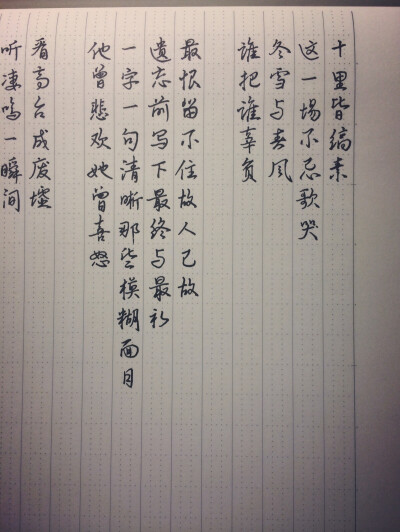 十里皆缟素
这一场不忌歌哭
冬雪与春风
谁把谁辜负
最恨留不住故人已故
遗忘前写下最终与最初
一字一句清晰那些模糊面目
他曾悲欢她曾喜怒
看高台成废墟
听凄鸣一瞬间